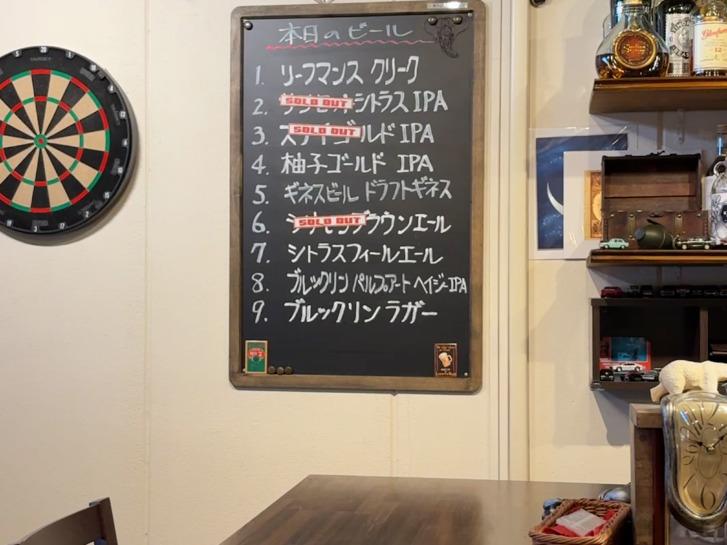 本日のビール
1. リーフマンス クリーク
2. SOLD OUT シトラス IPA
3. SOLD OUT ゴールド IPA
4. 柚子ゴールド IPA
5. ギネスビール ドラフトギネス
6. SOLD OUT ブラウンエール
7. シトラスフィールエール
8. ブルックリン パルプアート ヘイジーIPA
9. ブルックリン ラガー